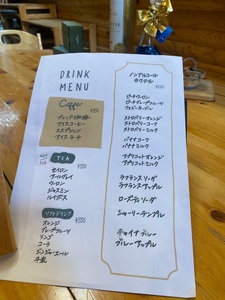 DRINK
MENU
Coffee
¥550
ブレンド珈琲
アイスコーヒー
エスプレッソ
アイスラテ
HOT
ICE
TEA
¥550
セイロン
アールグレイ
ウーロン
ジャスミン
ルイボス
ソフトドリンク
¥550
オレンジ
グレープフルーツ
リンゴ
コーラ
ジンジャーエール
牛乳
ノンアルコール
カクテル
ピーチウーロン
ピーチグレープフルーツ
ファジーネーブル
ストロベリーオレンジ
ストロベリーソーダ
ストロベリーミルク
バナナコーラ
バナナミルク
アプリコットオレンジ
アプリコットミルク
ラフランスソーダ
ラフランスアップル
ローズティソーダ
シャーリーテンプル
チャイナブルー
ブルーアップル